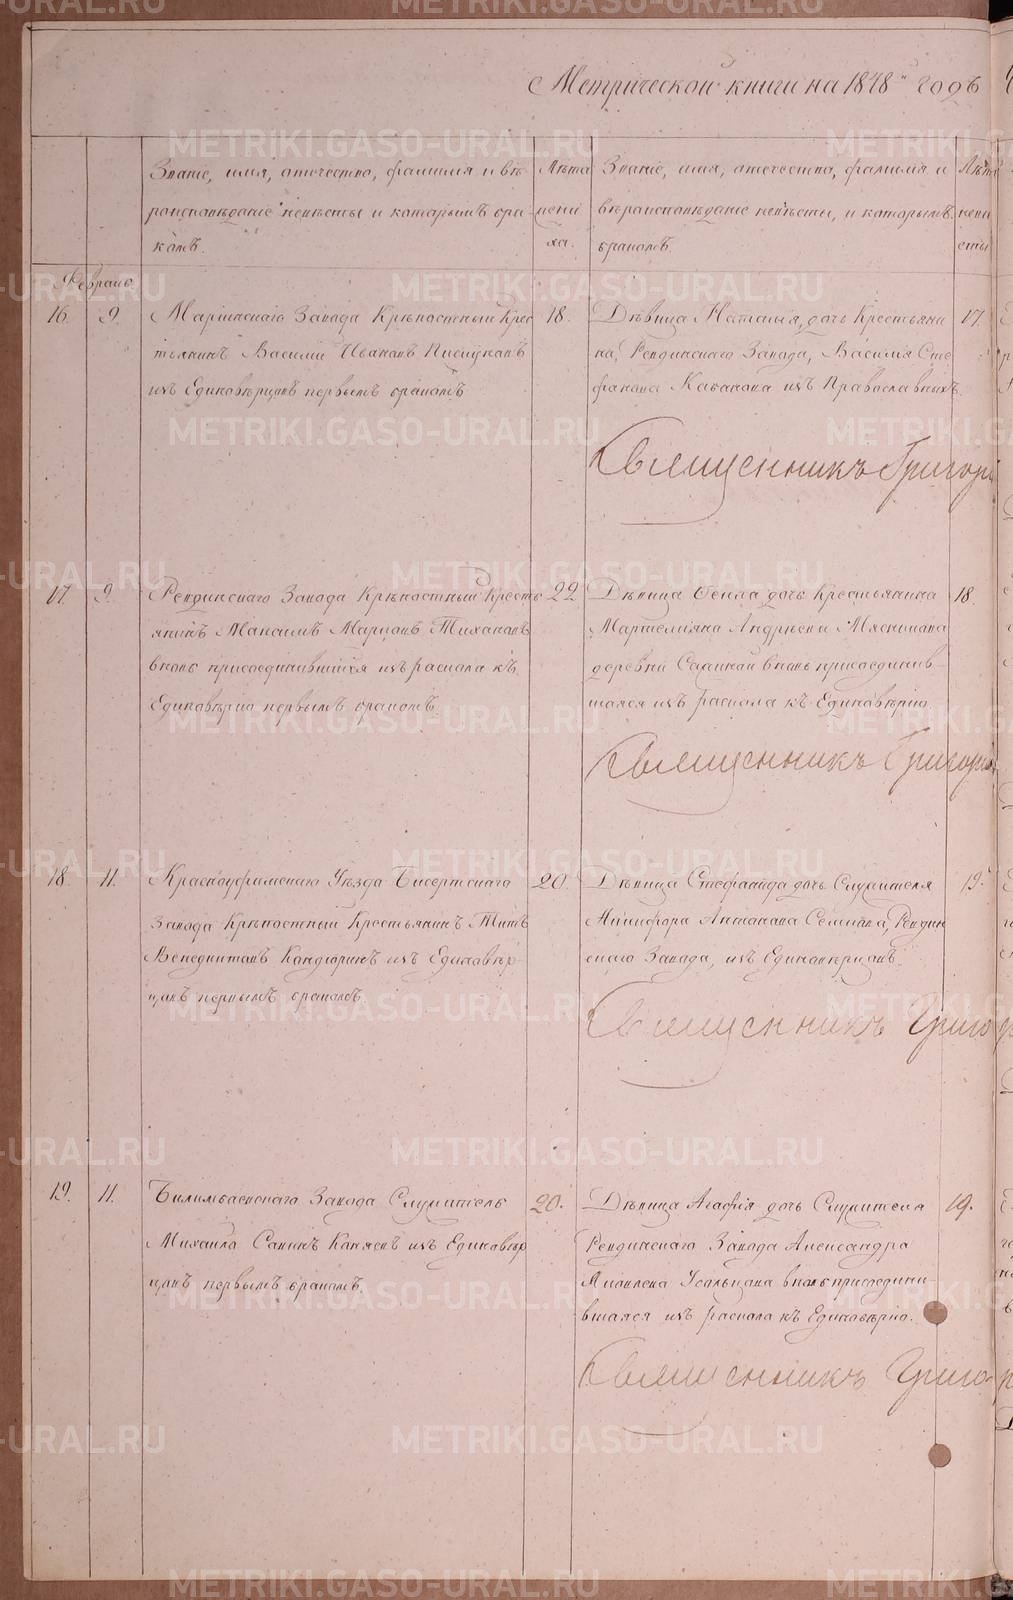 Метрической книги на 1848й годъ
Званіе, имя, отечество, фамилія и вѣ-
роисповѣданіе невѣсты и которымъ бра-
комъ.
Лѣта
жени
ха.
Званіе, имя, отечество, фамилія и
вѣроисповѣданіе невѣсты, и которымъ
бракомъ.
Лѣта
неви
сты
Февраль
16. 9.
Маріинскаго Завода Крѣпостный Крес
тьянинъ Василій Ивановъ
изъ Единовѣрцовъ первымъ бракомъ
18.
Дѣвица Наталія, дочь Крестьяни
на, Ревдинскаго Завода, Василія Сте
фанова Кабанова изъ Православныхъ
17.
Священникъ Григорі
17. 9.
Ревдинскаго Завода Крѣпостный Кресть
янинъ Максимъ Марковъ Тихановъ
вновь присоединившійся изъ раскола къ
Единовѣрію первымъ бракомъ.
22
Дѣвица Фекла дочь Крестьянина
Маркелліяна Андрѣева Мясникова
деревни вновь присоединив
шаяся изъ раскола къ Единовѣрію.
18.
Священникъ Григорій
18. 11.
Красноуфимскаго Уѣзда Бисертскаго
Завода Крѣпостный Крестьянинъ Титъ
Венедиктовъ Кондюринъ изъ Единовѣр-
цовъ первымъ бракомъ.
20.
Дѣвица Стефанида дочь Служителя
Никифора Антонова Семкова, Ревдин
скаго Завода, изъ Единовѣрцовъ.
19.
Священникъ Григо
19. 11.
Билимбаевскаго Завода Служитель
Михайло Савинъ Коняевъ изъ Единовѣр
цовъ первымъ бракомъ.
20.
Дѣвица Агафія дочь Служителя
Ревдинскаго Завода Александра
Яковлева Усольцова вновь присоедини-
вшаяся изъ раскола къ Единовѣрію.
19.
Священникъ Григо
METRIKI.GASO-URAL.RU